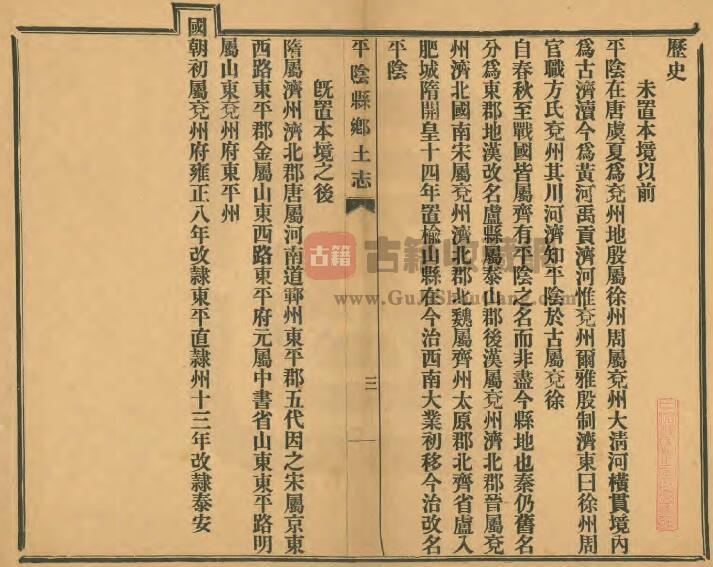 歷史
未置本境以前
平陰在唐虞夏爲兗州地殷屬徐州周屬兗州大清河橫貫境內
爲古濟瀆今爲黃河禹貢濟河惟兗州爾雅殷制濟東曰徐州周
官職方氏兗州其川河濟知平陰於古屬兗徐
自春秋至戰國皆屬齊有平陰之名而非盡今縣地也秦仍舊名
分爲東郡地漢改名盧縣屬泰山郡後漢屬兗州濟北郡晉屬兗
州濟北國南宋屬兗州濟北郡北魏屬齊州太原郡北齊省盧入
肥城隋開皇十四年置榆山縣在今治西南大業初移今治改名
平陰
平陰縣鄉土志
三
既置本境之後
隋屬濟州濟北郡唐屬河南道鄆州東平郡五代因之宋屬京東
西路東平郡金屬山東西路東平府元屬中書省山東東平路明
屬山東兗州府東平州
國朝初屬兗州府雍正八年改隸東平直隸州十三年改隸泰安
古籍
古籍收藏网
www.GuJiShuCang.com